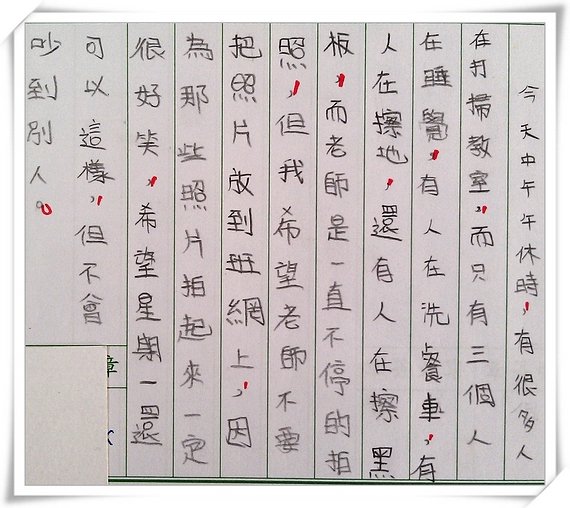 今天中午午休時，有很多人
在打掃教室，而只有三個人
在睡覺，有人在洗餐車，有
人在擦地，還有人在擦黑
板，而老師是一直不停的拍
照，但我希望老師不要
把照片放到班網上，因
為那些照片拍起來一定
很好笑，希望星期一還
可以這樣，但不會
吵到別人。